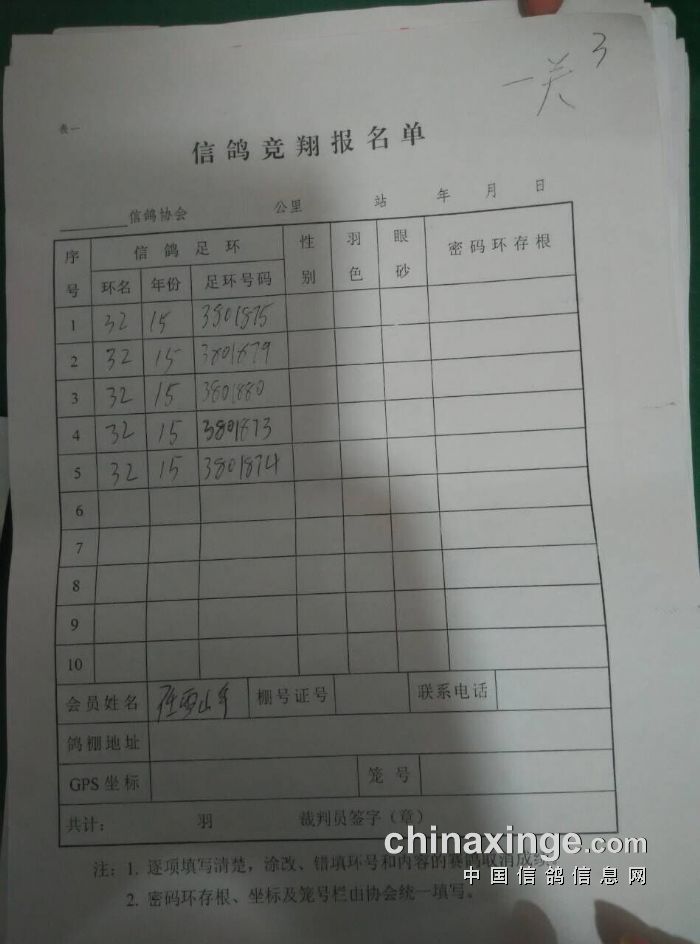 一关 3
表一
信鸽竞翔报名单
信鸽协会 公里 站 年 月 日
序号 信鸽足环 性别 羽色 眼砂 密码环存根
环名 年份 足环号码
1 32 15 3801875
2 32 15 3801879
3 32 15 3801880
4 32 15 3801873
5 32 15 3801874
6
7
8
9
10
会员姓名 棚号证号 联系电话
鸽棚地址
GPS坐标 笼号
共计: 羽 裁判员签字(章)
注: 1. 逐项填写清楚,涂改、错填环号和内容的赛鸽取消成绩
2. 密码环存根、坐标及笼号栏由协会统一填写。
chinaxinge.com
中国信鸽信息网